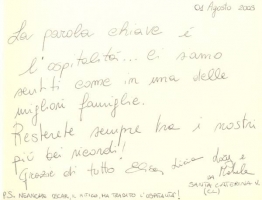 04 Agosto 2005
La parola chiave è
l'ospitalità... ci siamo
sentiti come in una delle
migliori famiglie.
Resterete sempre tra i nostri
più bei ricordi!
Grazie di tutto
SANTA CATERINA V.
(CL)
P.S. NEANCHE OSCAR, IL MITICO, HA TRADITO L'OSPITALITÀ!